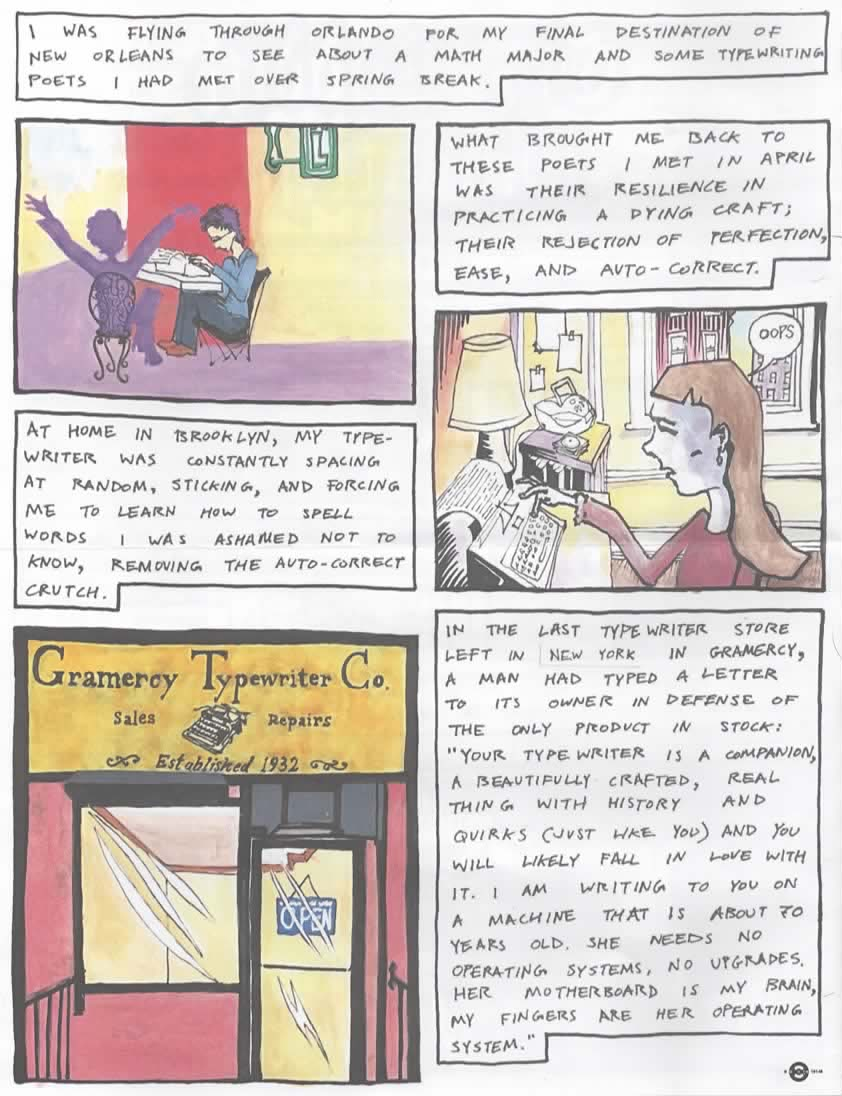 I WAS FLYING THROUGH ORLANDO FOR MY FINAL DESTINATION OF
NEW ORLEANS TO SEE ABOUT A MATH MAJOR AND SOME TYPEWRITING
POETS I HAD MET OVER SPRING BREAK.
WHAT BROUGHT ME BACK TO
THESE POETS I MET IN APRIL
WAS THEIR RESILIENCE IN
PRACTICING A DYING CRAFT;
THEIR REJECTION OF PERFECTION,
EASE, AND AUTO-CORRECT.
OOPS
AT HOME IN BROOKLYN, MY TYPE-
WRITER WAS CONSTANTLY SPACING
AT RANDOM, STICKING, AND FORCING
ME TO LEARN HOW TO SPELL
WORDS I WAS ASHAMED NOT TO
KNOW, REMOVING THE AUTO-CORRECT
CRUTCH.
Gramercy Typewriter Co.
Sales Repairs
Established 1932
OPEN
IN THE LAST TYPEWRITER STORE
LEFT IN NEW YORK IN GRAMERCY,
A MAN HAD TYPED A LETTER
TO ITS OWNER IN DEFENSE OF
THE ONLY PRODUCT IN STOCK:
"YOUR TYPEWRITER IS A COMPANION,
A BEAUTIFULLY CRAFTED, REAL
THING WITH HISTORY AND
QUIRKS (JUST LIKE YOU) AND YOU
WILL LIKELY FALL IN LOVE WITH
IT. I AM WRITING TO YOU ON
A MACHINE THAT IS ABOUT 70
YEARS OLD. SHE NEEDS NO
OPERATING SYSTEMS, NO UPGRADES.
HER MOTHERBOARD IS MY BRAIN,
MY FINGERS ARE HER OPERATING
SYSTEM."